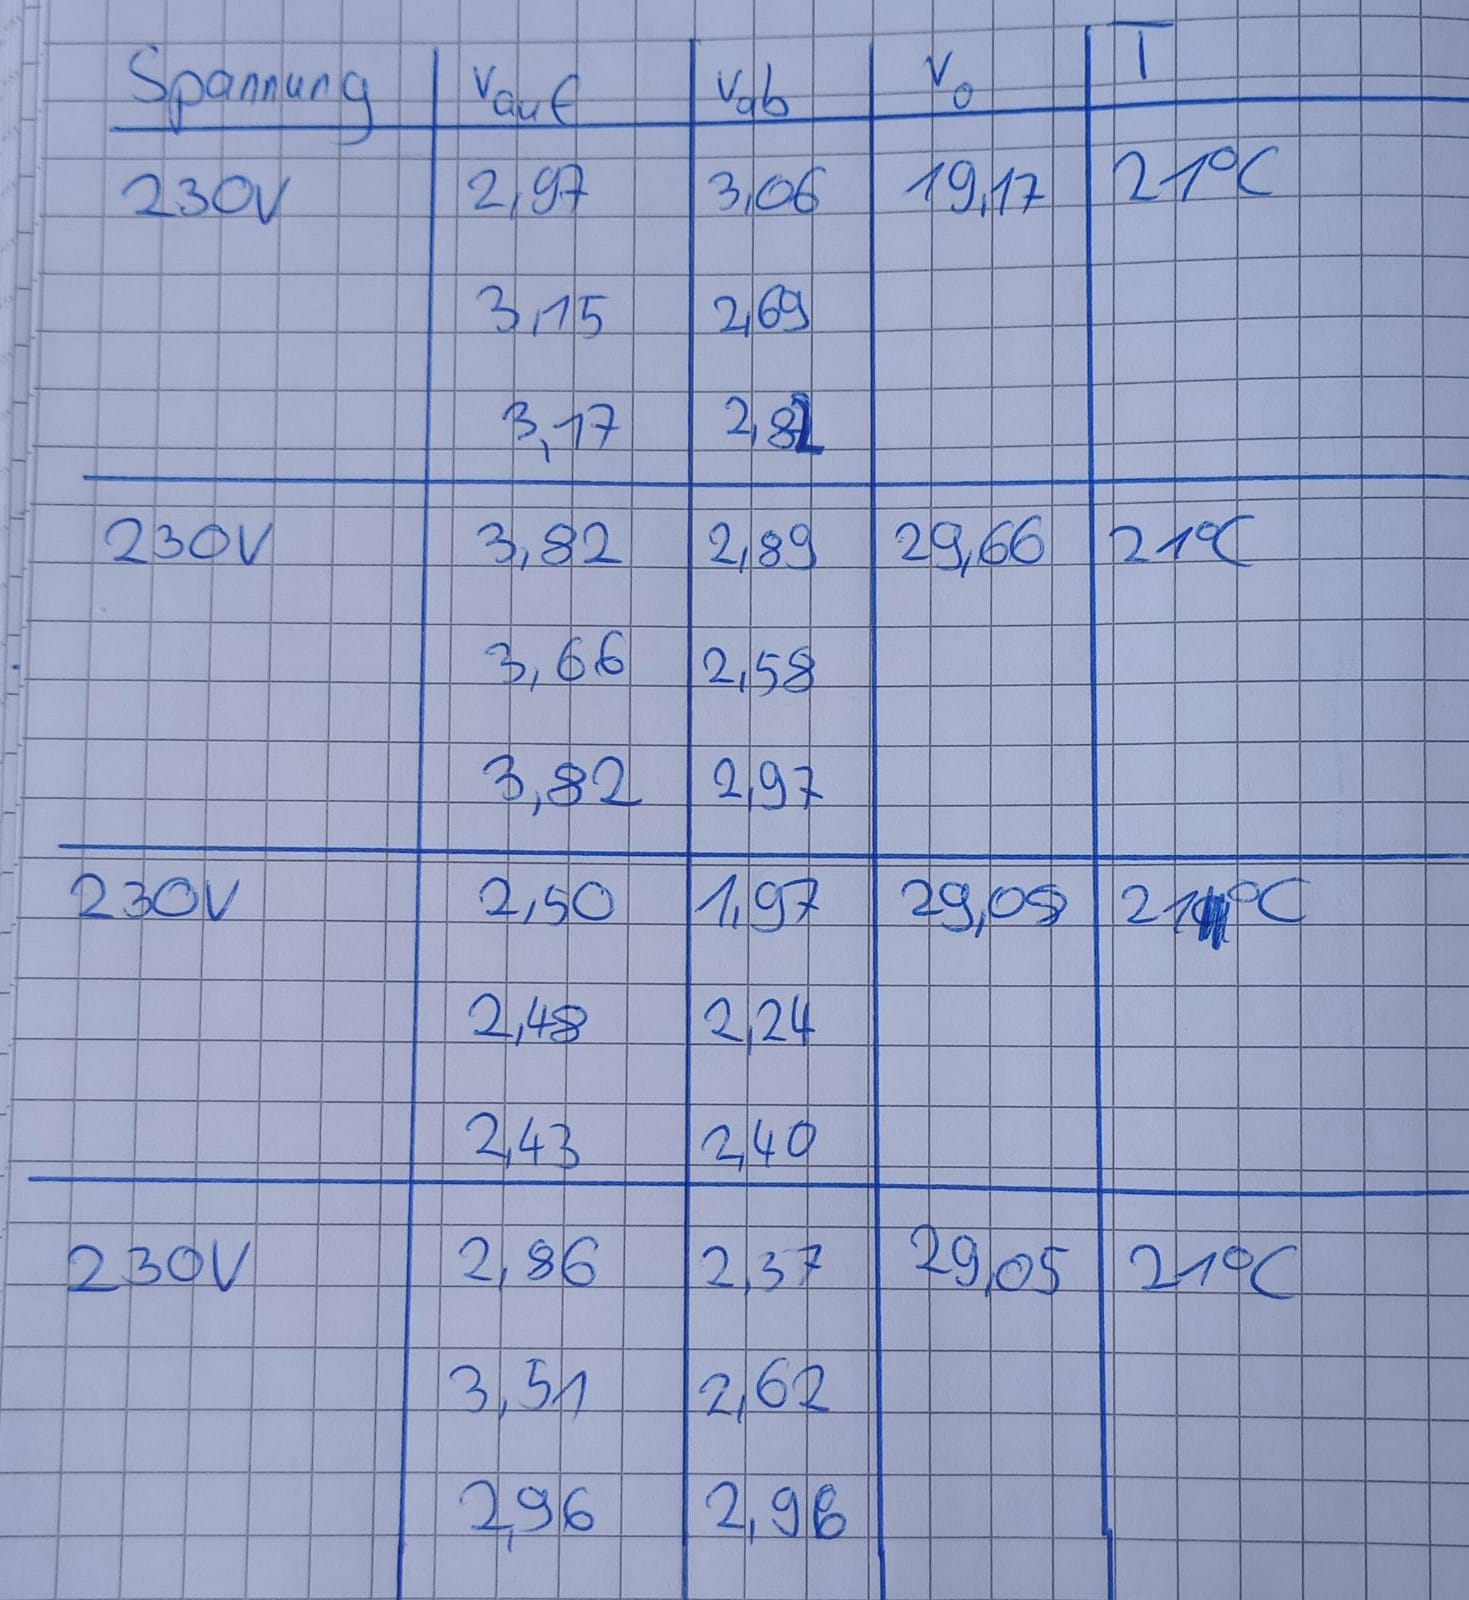 Spannung vauf vab v0 T
230V 2,97 3,06 19,17 21°C
3,15 2,69
3,17 2,82
230V 3,82 2,89 29,66 21°C
3,66 2,58
3,82 2,97
230V 2,50 1,97 29,08 21°C
2,48 2,24
2,43 2,40
230V 2,86 2,37 29,05 21°C
3,51 2,62
2,96